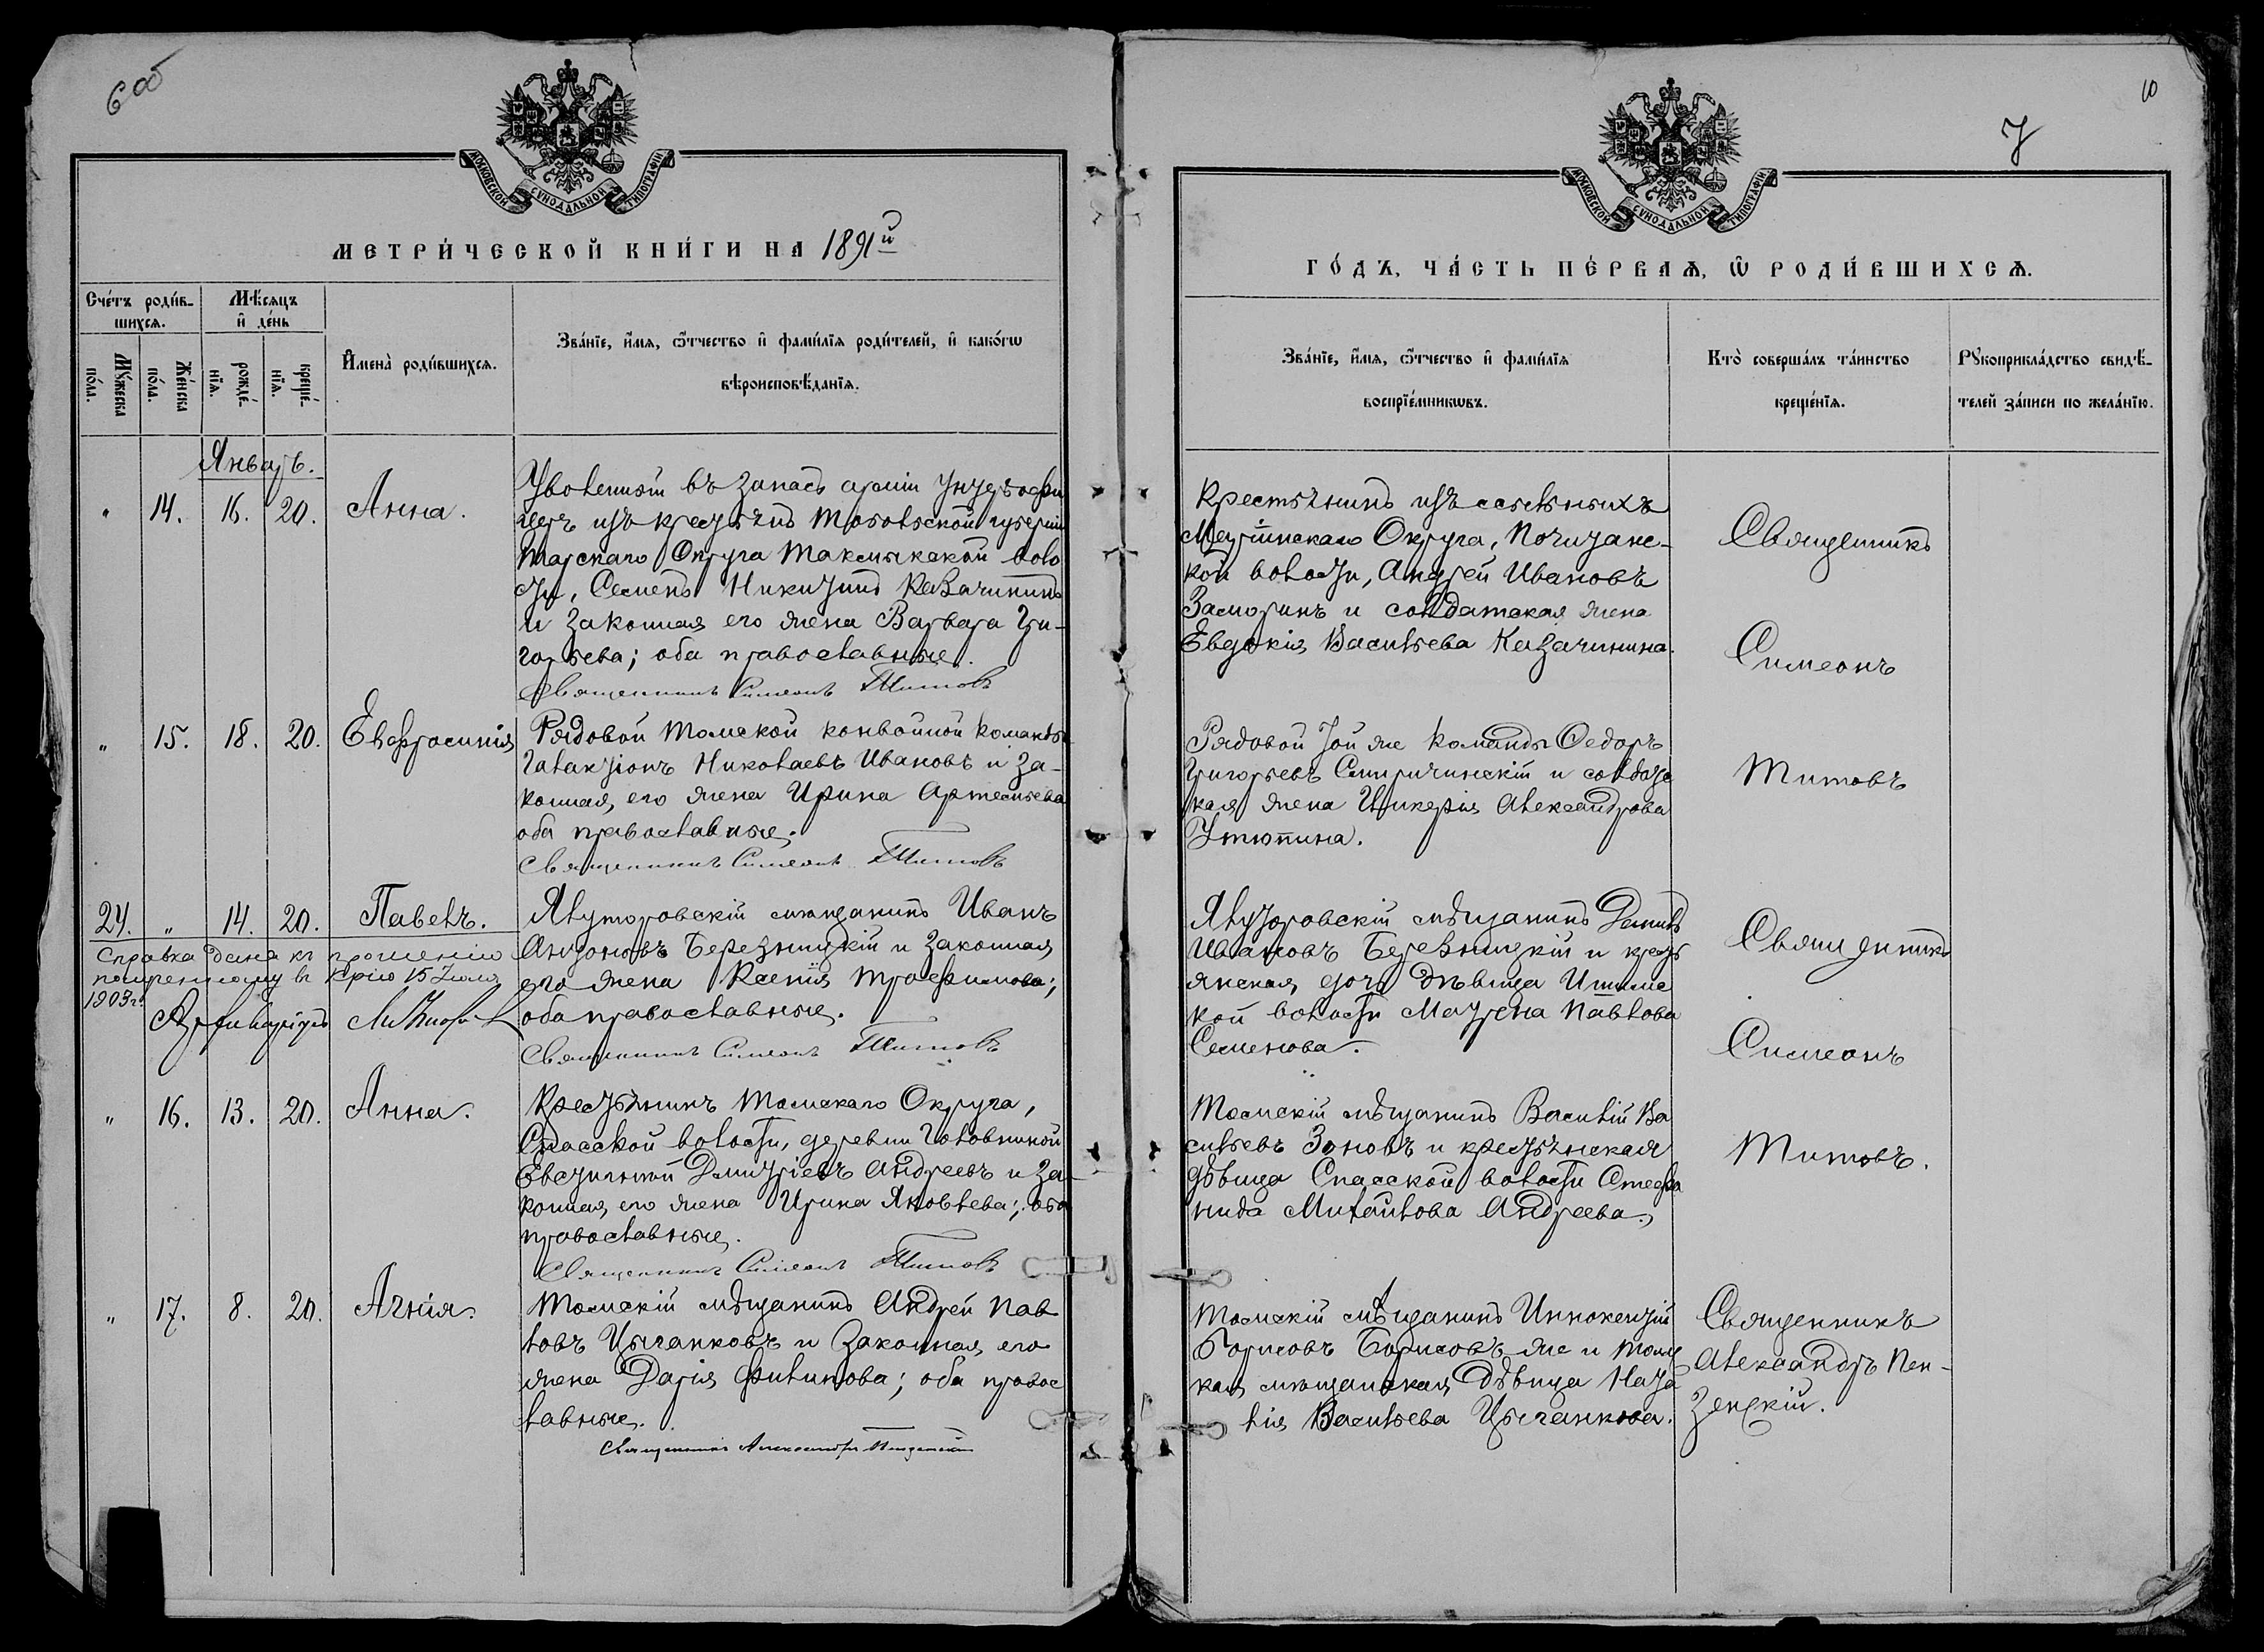 6 об
МОСКОВСКОЙ СѴНОДАЛЬНОЙ ТИПОГРАФІИ
МЕТРИ́ЧЕСКОЙ КНИ́ГИ НА 1891й
Сче́тъ роди́вшихсѧ.
Мѣ́сяцъ и҆ де́нь
Мꙋ́жеска по́ла.
Же́нска по́ла.
рожде́нїѧ.
креще́нїѧ.
И҆мена̀ роди́вшихсѧ.
Зва́нїе, и҆́мѧ, ѻ҆́тчество и҆ фами́лїѧ роди́телей, и҆ како́гѡ
вѣроисповѣ́данїѧ.
Январь.
" 14. 16. 20. Анна.
Уволенный въ запасъ арміи унтеръ офи
церъ изъ крестьянъ Тобольской губерніи
Тарскаго Округа Такмыкской воло
сти, Семенъ Никитинъ Казачининъ
и законная его жена Варвара Гри-
горьева; оба православные.
Священникъ Симеонъ Титовъ
" 15. 18. 20. Евфросинія
Рядовой Томской конвойной команды
Галактіонъ Николаевъ Ивановъ и за-
конная его жена Ирина Артемьева
оба православные.
Священникъ Симеонъ Титовъ
24. " 14. 20. Павелъ.
Ялуторовскій мѣщанинъ Иванъ
Антоновъ Березницкій и законная
его жена Ксенія Трофимова;
оба православные.
Священникъ Симеонъ Титовъ
Справка дана къ прошенію
1903 г.
" 16. 13. 20. Анна.
Крестьянинъ Томскаго Округа,
Спасской волости, деревни Головниной
Евстигней Дмитріевъ Андреевъ и за-
конная его жена Ирина Яковлева; оба
православные.
Священникъ Симеонъ Титовъ
" 17. 8. 20. Агнія.
Томскій мѣщанинъ Андрей Пав
ловъ Цыганковъ и законная его
жена Дарія Филипова; оба правос
лавные.
Священникъ Александръ Пензенскій
10
7
МОСКОВСКОЙ СѴНОДАЛЬНОЙ ТИПОГРАФІИ
ГО́ДЪ, ЧА́СТЬ ПЕ́РВАѦ, Ѽ РОДИ́ВШИХСѦ.
Зва́нїе, и҆́мѧ, ѻ҆́тчество и҆ фами́лїѧ
воспрїе́мникѡвъ.
Кто̀ соверша́лъ та́инство
креще́нїѧ.
Рꙋкоприкла́дство свидѣ́-
телей за́писи по жела́нїю.
Крестьянинъ изъ ссыльныхъ
Маріинскаго Округа, Почитанс-
кой волости, Андрей Ивановъ
Заморинъ и солдатская жена
Евдокія Васильева Казачинина.
Священникъ
Симеонъ
Титовъ
Рядовой той же команды Ѳедоръ
Григорьевъ Смиричинскій и солдатс
кая жена Гликерія Александрова
Утюпина.
Ялуторовскій мѣщанинъ Даніилъ
Ивановъ Березницкій и крестъ
янская дочь дѣвица Ишимс
кой волости Матрена Павлова
Семенова.
Священникъ
Симеонъ
Титовъ.
Томскій мѣщанинъ Василій Ва
сильевъ Зоновъ и крестьянская
дѣвица Спасской волости Стефа
нида Михайлова Андреева.
Томскій мѣщанинъ Иннокентій
Борисовъ Борисовъ же и Томс
кая мѣщанская дѣвица Ната
лія Васильева Цыганкова.
Священникъ
Александръ Пен-
зенскій.